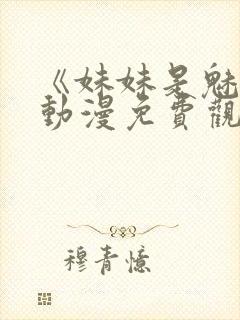 《妹妹是魅
動漫免費觀
穆青憶